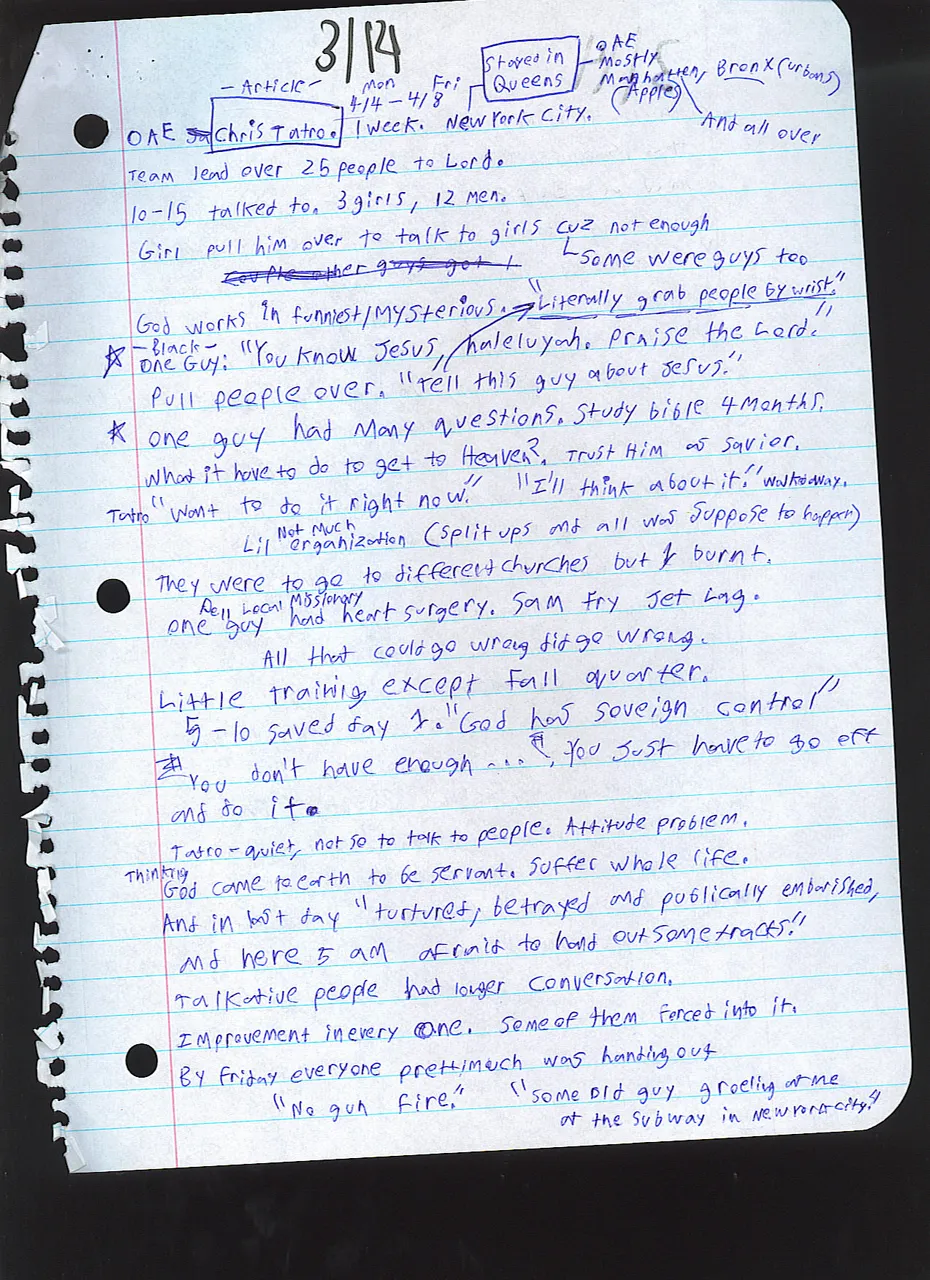 3/14
- Article -
Mon Fri
4/4 - 4/8
Stayed in
Queens
OAE
Mostly
Manhatten, Bronx (urbans)
(Apples)
And all over
OAE Chris Tatro. 1 week. New York City.
Team lead over 25 people to Lord.
10-15 talked to. 3 girls, 12 men.
Girl pull him over to talk to girls cuz not enough
Some were guys too
God works in funniest/mysterious. "Literally grab people by wrist."
- Black -
One Guy: "You know Jesus, haleluyah. Praise the Lord."
Pull people over. "Tell this guy about Jesus."
one guy had many questions. Study bible 4 months.
What it have to do to get to Heaven?. Trust Him as savior.
Tatro "Want to do it right now." "I'll think about it." walked away.
Not Much
Lil organization (split ups and all was suppose to happen)
They were to go to different churches but burnt.
Local Missionary
one guy had heart surgery. Sam Fry Jet Lag.
All that could go wrong did go wrong.
Little training except Fall quarter.
5-10 saved day 1. "God has soveign control"
You don't have enough ... , you just have to go off
and do it.
Tatro - quiet, not so to talk to people. Attitude problem.
Thinking
God came to earth to be servant. Suffer whole life.
And in last day "tortured, betrayed and publically embarished,
and here I am afraid to hand out some tracts."
Talkative people had longer conversation.
Improvement in every one. Some of them forced into it.
By Friday everyone prettimuch was handing out
"No gun fire." "Some old guy groeling at me
at the subway in New York city."